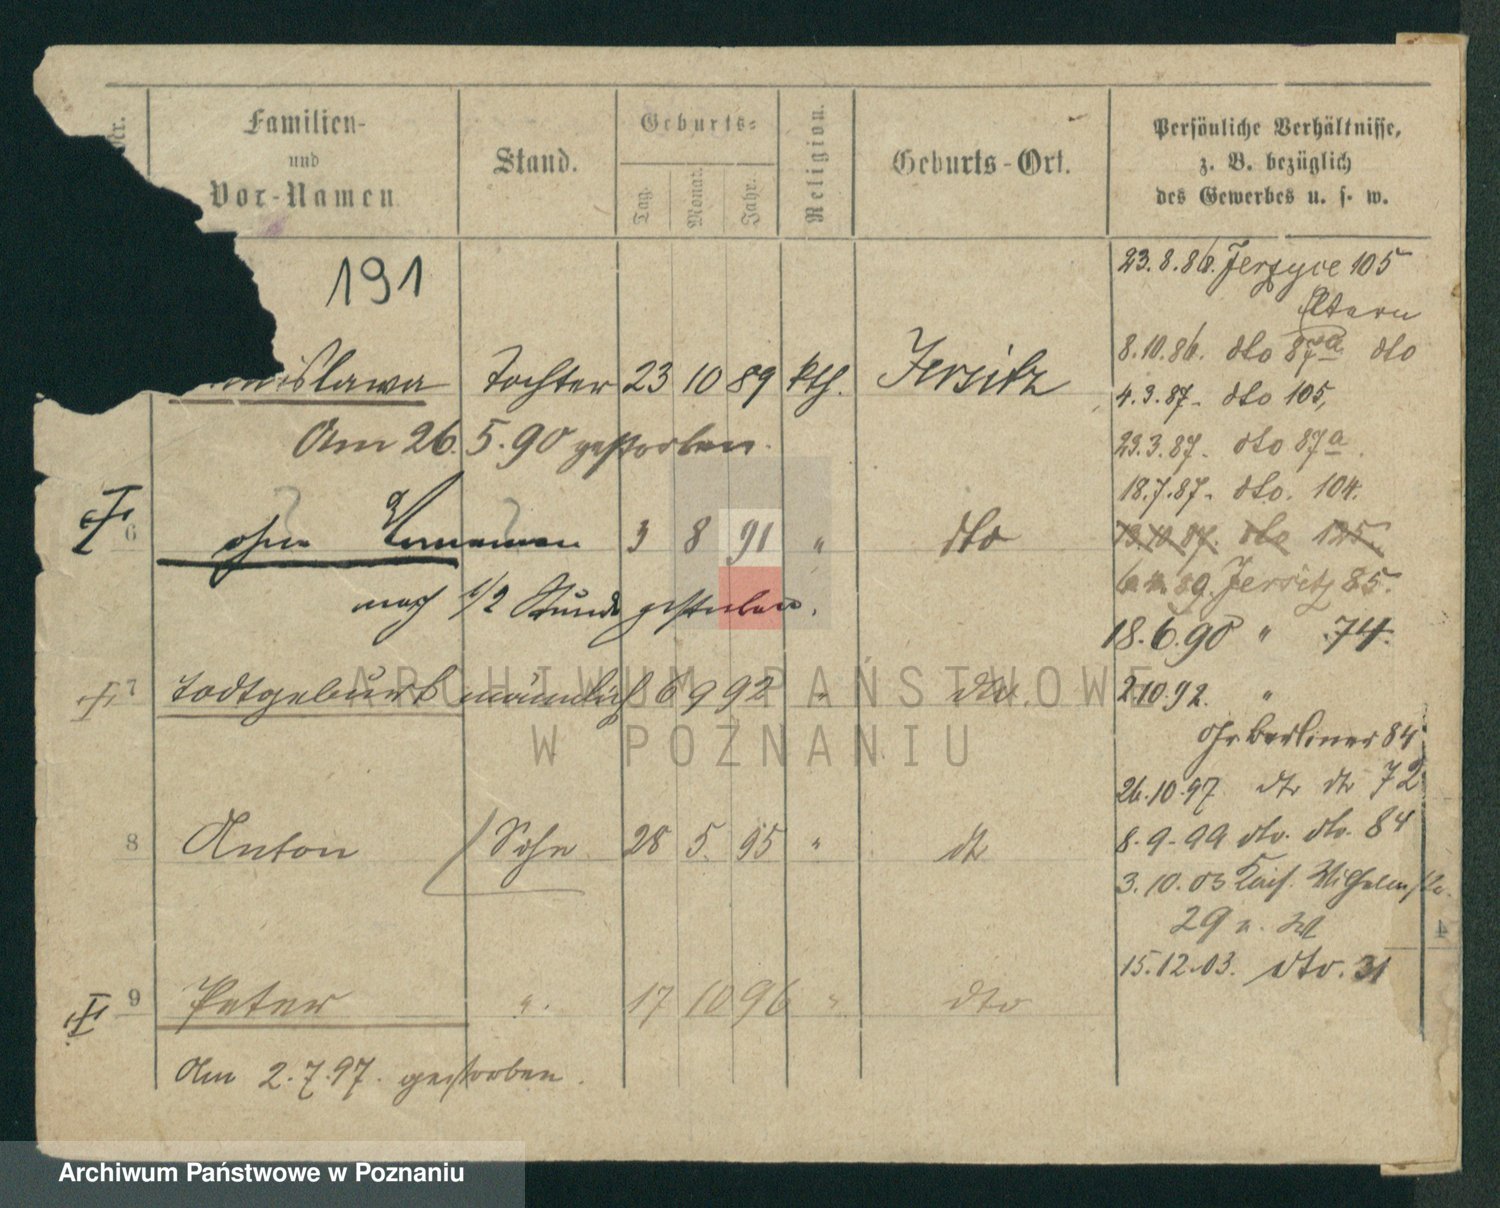 Nr.
Familien-
und
Vor-Namen
Stand.
Geburts-
Tag.
Monat.
Jahr.
Religion.
Geburts-Ort.
Persönliche Verhältnisse,
z. B. bezüglich
des Gewerbes u. s. w.
191
nislawa Tochter 23 10 89 kth. Jersitz
Am 26. 5. 90 gestorben.
6 ohne Vornamen 3 8 91 " dto
nach 1/2 Stunde gestorben.
7 todtgeburt männlich 6 9 92 " dto.
8 Anton Sohn 28 5. 95 " dt
9 Peter ". 17 10 96 " dto
Am 2.7.97. gestorben.
23.8.86. Jerzyce 105
Eltern
8.10.86. dto 87a dto
4.3.87. dto 105,
23.3.87. dto 87a.
18.7.87. dto. 104.
dto 125.
89. Jersitz 85.
18.6.90 " 74.
2.10.92. "
Gr. Berliner 84
26.10.97 dto dto 72
8.9.99 dto. dto. 84
3.10.03 Kais. Wilhelmstr.
29
15.12.03. dto. 31
4
ARCHIWUM PAŃSTWOWE
W POZNANIU
Archiwum Państwowe w Poznaniu